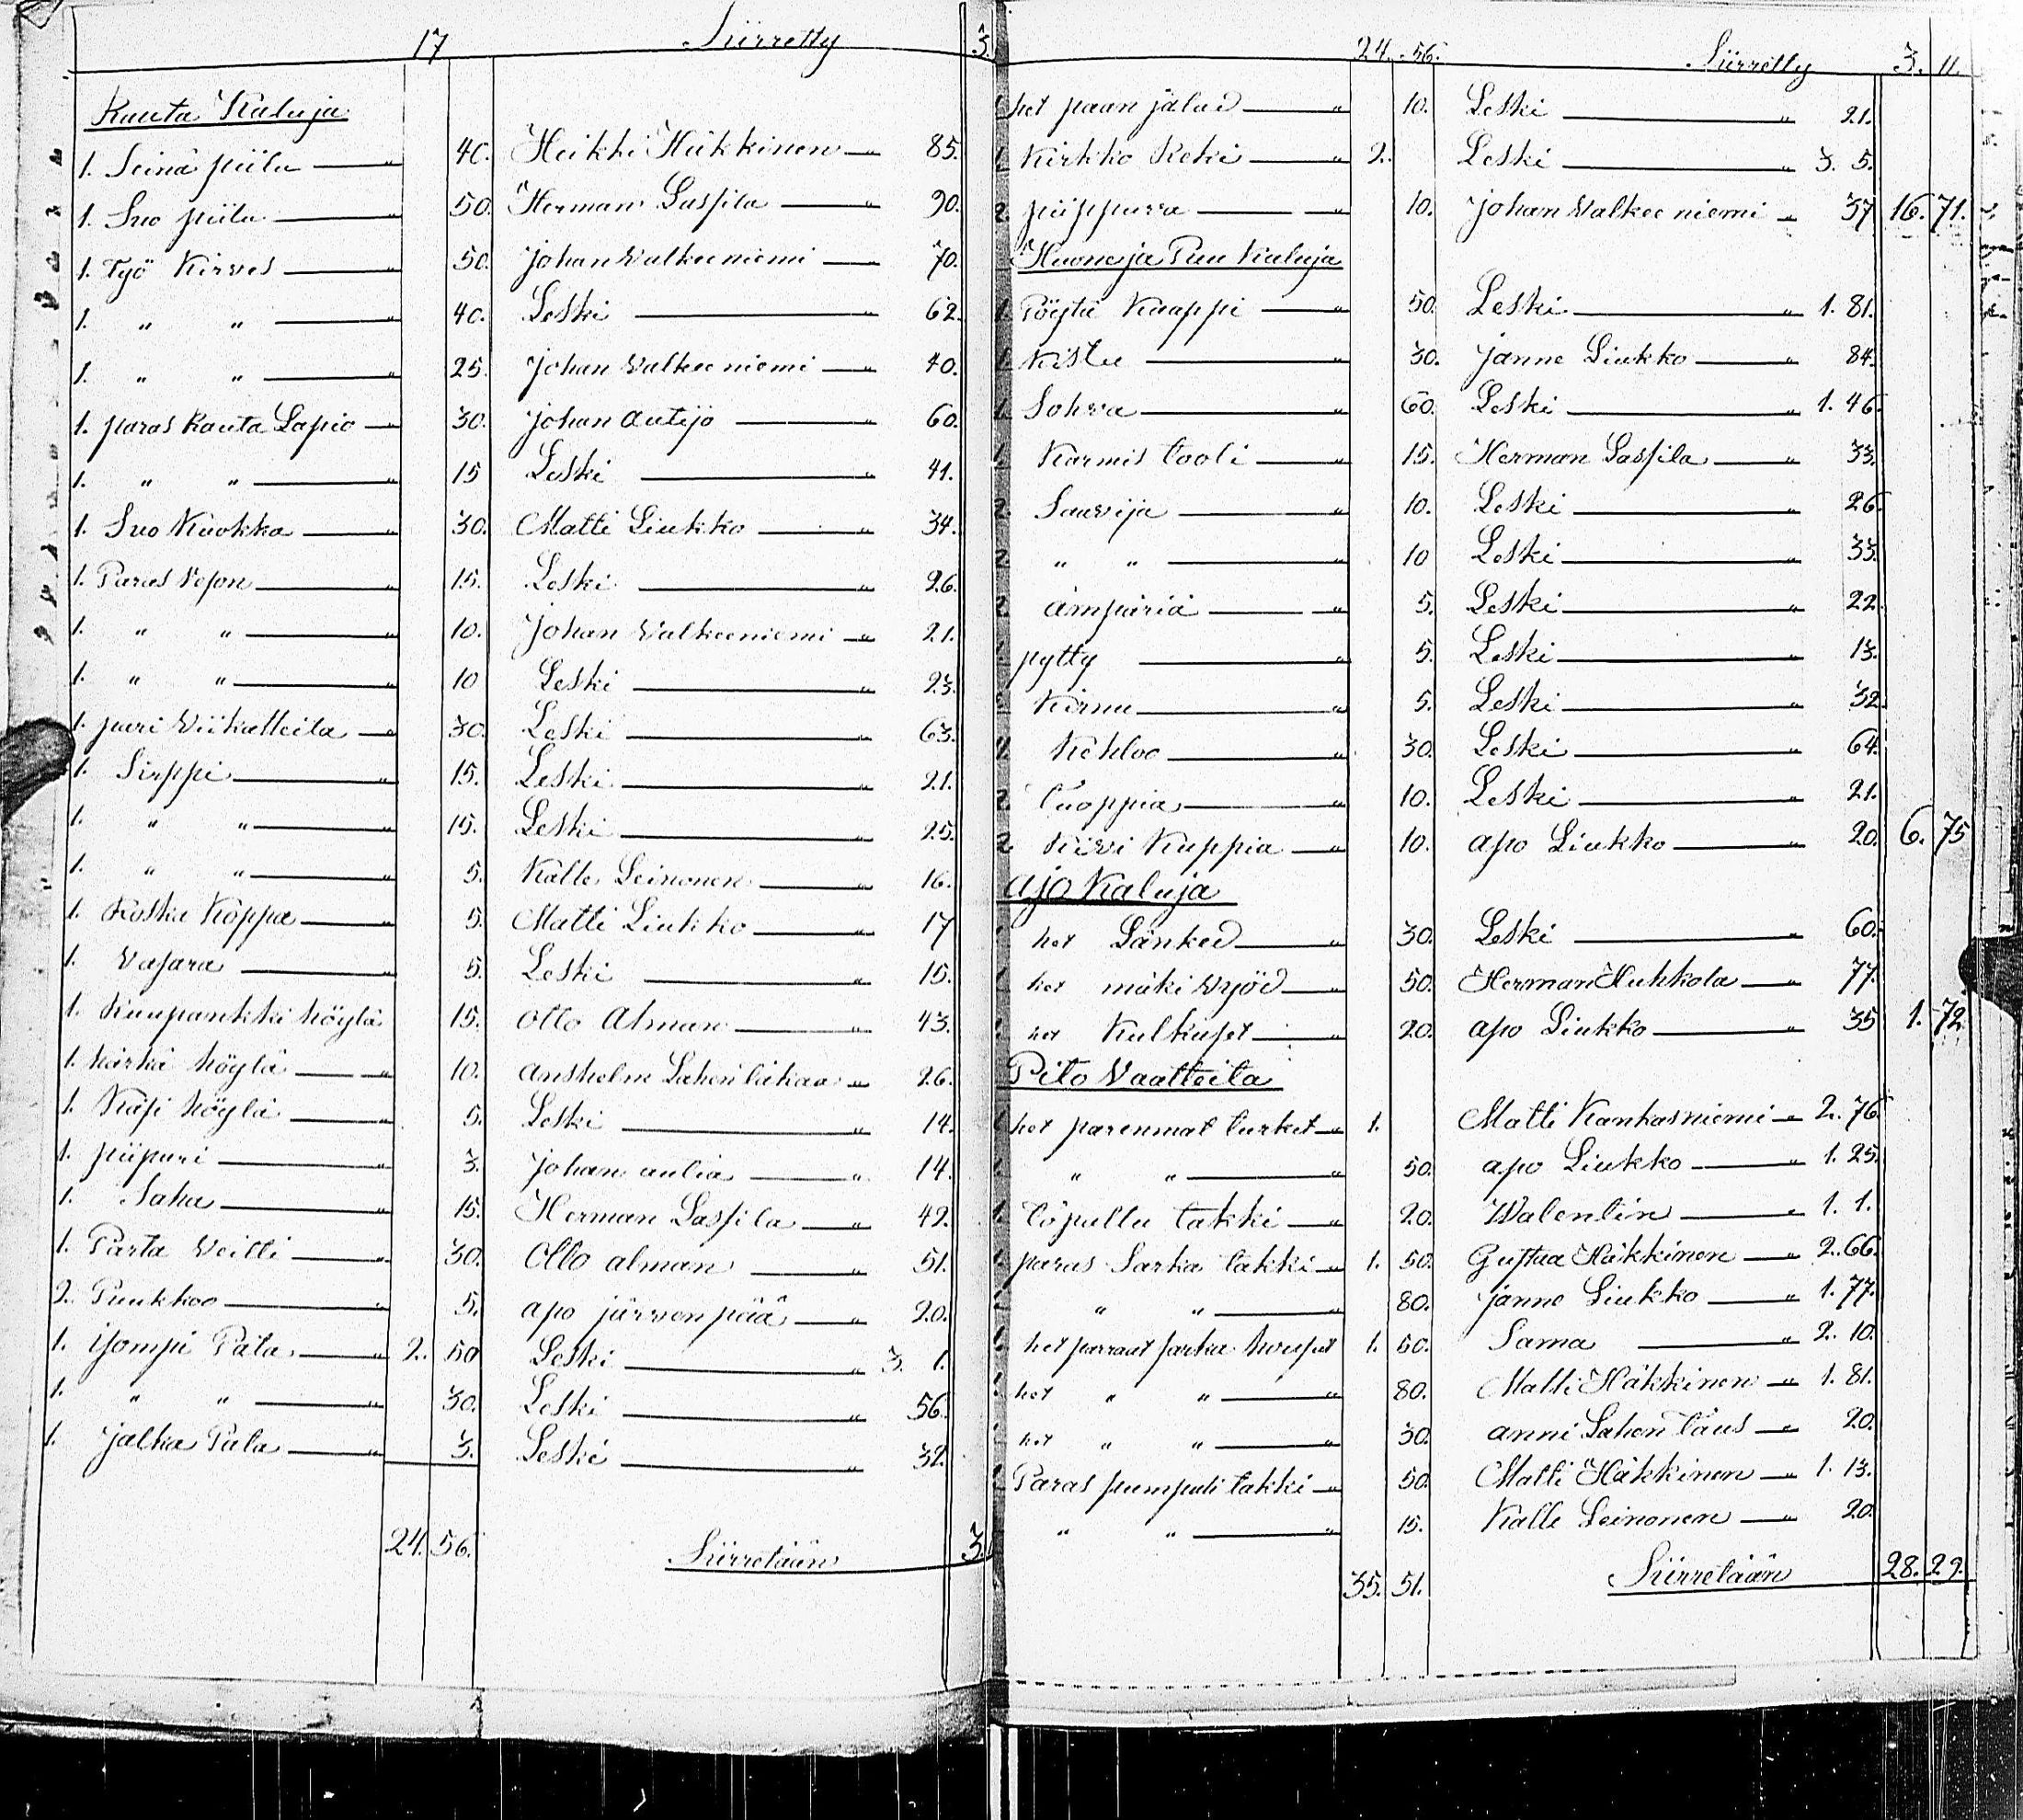 17 Siirretty 3.
Rauta Kaluja
1. Seinä piilu — " 40. Heikki Häkkinen — " 85.
1. Suo piilu — " 50. Herman Lassila — " 90.
1. Työ Kirves — " 50. Johan Valkeeniemi — " 70.
1. " " — " 40. Leski — " 62.
1. " " — " 25. Johan Valkeeniemi — " 40.
1. paras Rauta Lapio — " 30. Johan Autijo — " 60.
1. " " — " 15 Leski — " 41.
1. Suo Kuokka — " 30. Matti Liukko — " 34.
1. Paras — " 15. Leski — " 26.
1. " " — " 10. Johan Valkeeniemi — " 21.
1. " " — " 10 Leski — " 23.
1. pari Viikatteita — " 30. Leski — " 63.
1. Sirppi — " 15. Leski — " 21.
1. " " — " 15. Leski — " 25.
1. " " — " 5. Kalle Leinonen — " 16.
1. Koska Koppa — " 5. Matti Liukko — " 17
1. Vasara — " 5. Leski — " 15.
1. Ruupankki höylä 15. Otto Alman — " 43.
1. härkä höylä — " 10. Anshelm — " 26.
1. Käsi höylä — " 5. Leski — " 14.
1. piipuri — " 3. Johan autia — " 14.
1. Saha — " 15. Herman Lassila — " 42.
1. Parta Veitti — " 30. Otto alman — " 51.
2. Puukkoo — " 5. apo järvenpää — " 20.
1. isompi Pata — " 2. 50 Leski — " 3. 1.
1. " " — " 30. Leski — " 56.
1. jalka Pata — " 3. Leski — " 32.
24. 56. Siirretään 3.
24. 56. Siirretty 3. 11.
1 het paan jalad — " 10. Leski — " 21.
1 Kirkko Reki — " 2. Leski — " 3. 5.
2 piippuva — " 10. Johan Valkeeniemi " 37 16. 71.
Huone ja Puu Kaluja
1. Pöytä Kaappi — " 50. Leski — " 1. 81.
1 Kistu — " 30. Janne Liukko — " 84.
1. Sohva — " 60. Leski — " 1. 46.
1 Karmis tooli — " 15. Herman Lassila — " 33.
2. Saavija — " 10. Leski — " 26.
2 " " — " 10 Leski — " 33.
2. ämpäriä — " 5. Leski — " 22.
pytty — " 5. Leski — " 13.
Kirnu — " 5. Leski — " 32.
2. Kehloo — " 30. Leski — " 64.
2 Tuoppia — " 10. Leski — " 21.
2 Kiivi Kuppia — " 10. apo Liukko — " 20. 6. 75
ajo Kaluja
1 het Länked — " 30. Leski — " 60.
1 het mäki vyöd — " 50. Herman Huhkola — " 77.
1 het Kulkuset — " 20. apo Liukko — " 35 1. 72.
Pito Vaatteita
1 het paremmat turket " 1. Matti Kankasniemi " 2. 76.
1 " " — " 50. apo Liukko — " 1. 25.
1. Topattu takki — " 20. Walentin — " 1. 1.
1. paras Sarka takki " 1. 50. Gustaa Häkkinen — " 2. 66.
" " — " 80. Janne Liukko — " 1. 77.
1. het parraat sarka housut 1. 50. Sama — " 2. 10.
1. het " " — " 80. Matti Häkkinen " 1. 81.
1 het " " — " 30. anni " 20.
1 Paras pumpuli takki " 50. Matti Häkkinen — " 1. 13.
1 " " — " 15. Kalle Leinonen — " 20.
35. 51. Siirretään 28. 29.